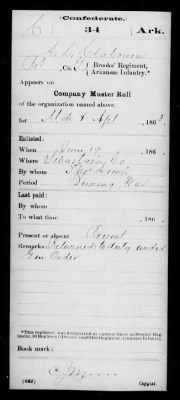 Confederate.
C 34 Ark.
Co. Brooks' Regiment,
Arkansas Infantry.*
Appears on
Company Muster Roll
of the organization named above,
for Mch & Apl, 1863.
Enlisted:
When June 19, 186
Where Sebastian Co
By whom
Period During War
Last paid:
By whom
To what time , 186 .
Present or absent Present
Remarks: Returned to duty under
Gen Order
*This regiment was designated at various times as Brooks' Regiment,
Book mark:
(642) Copyist.